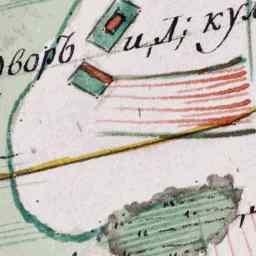 Дворъ и,Д; кул